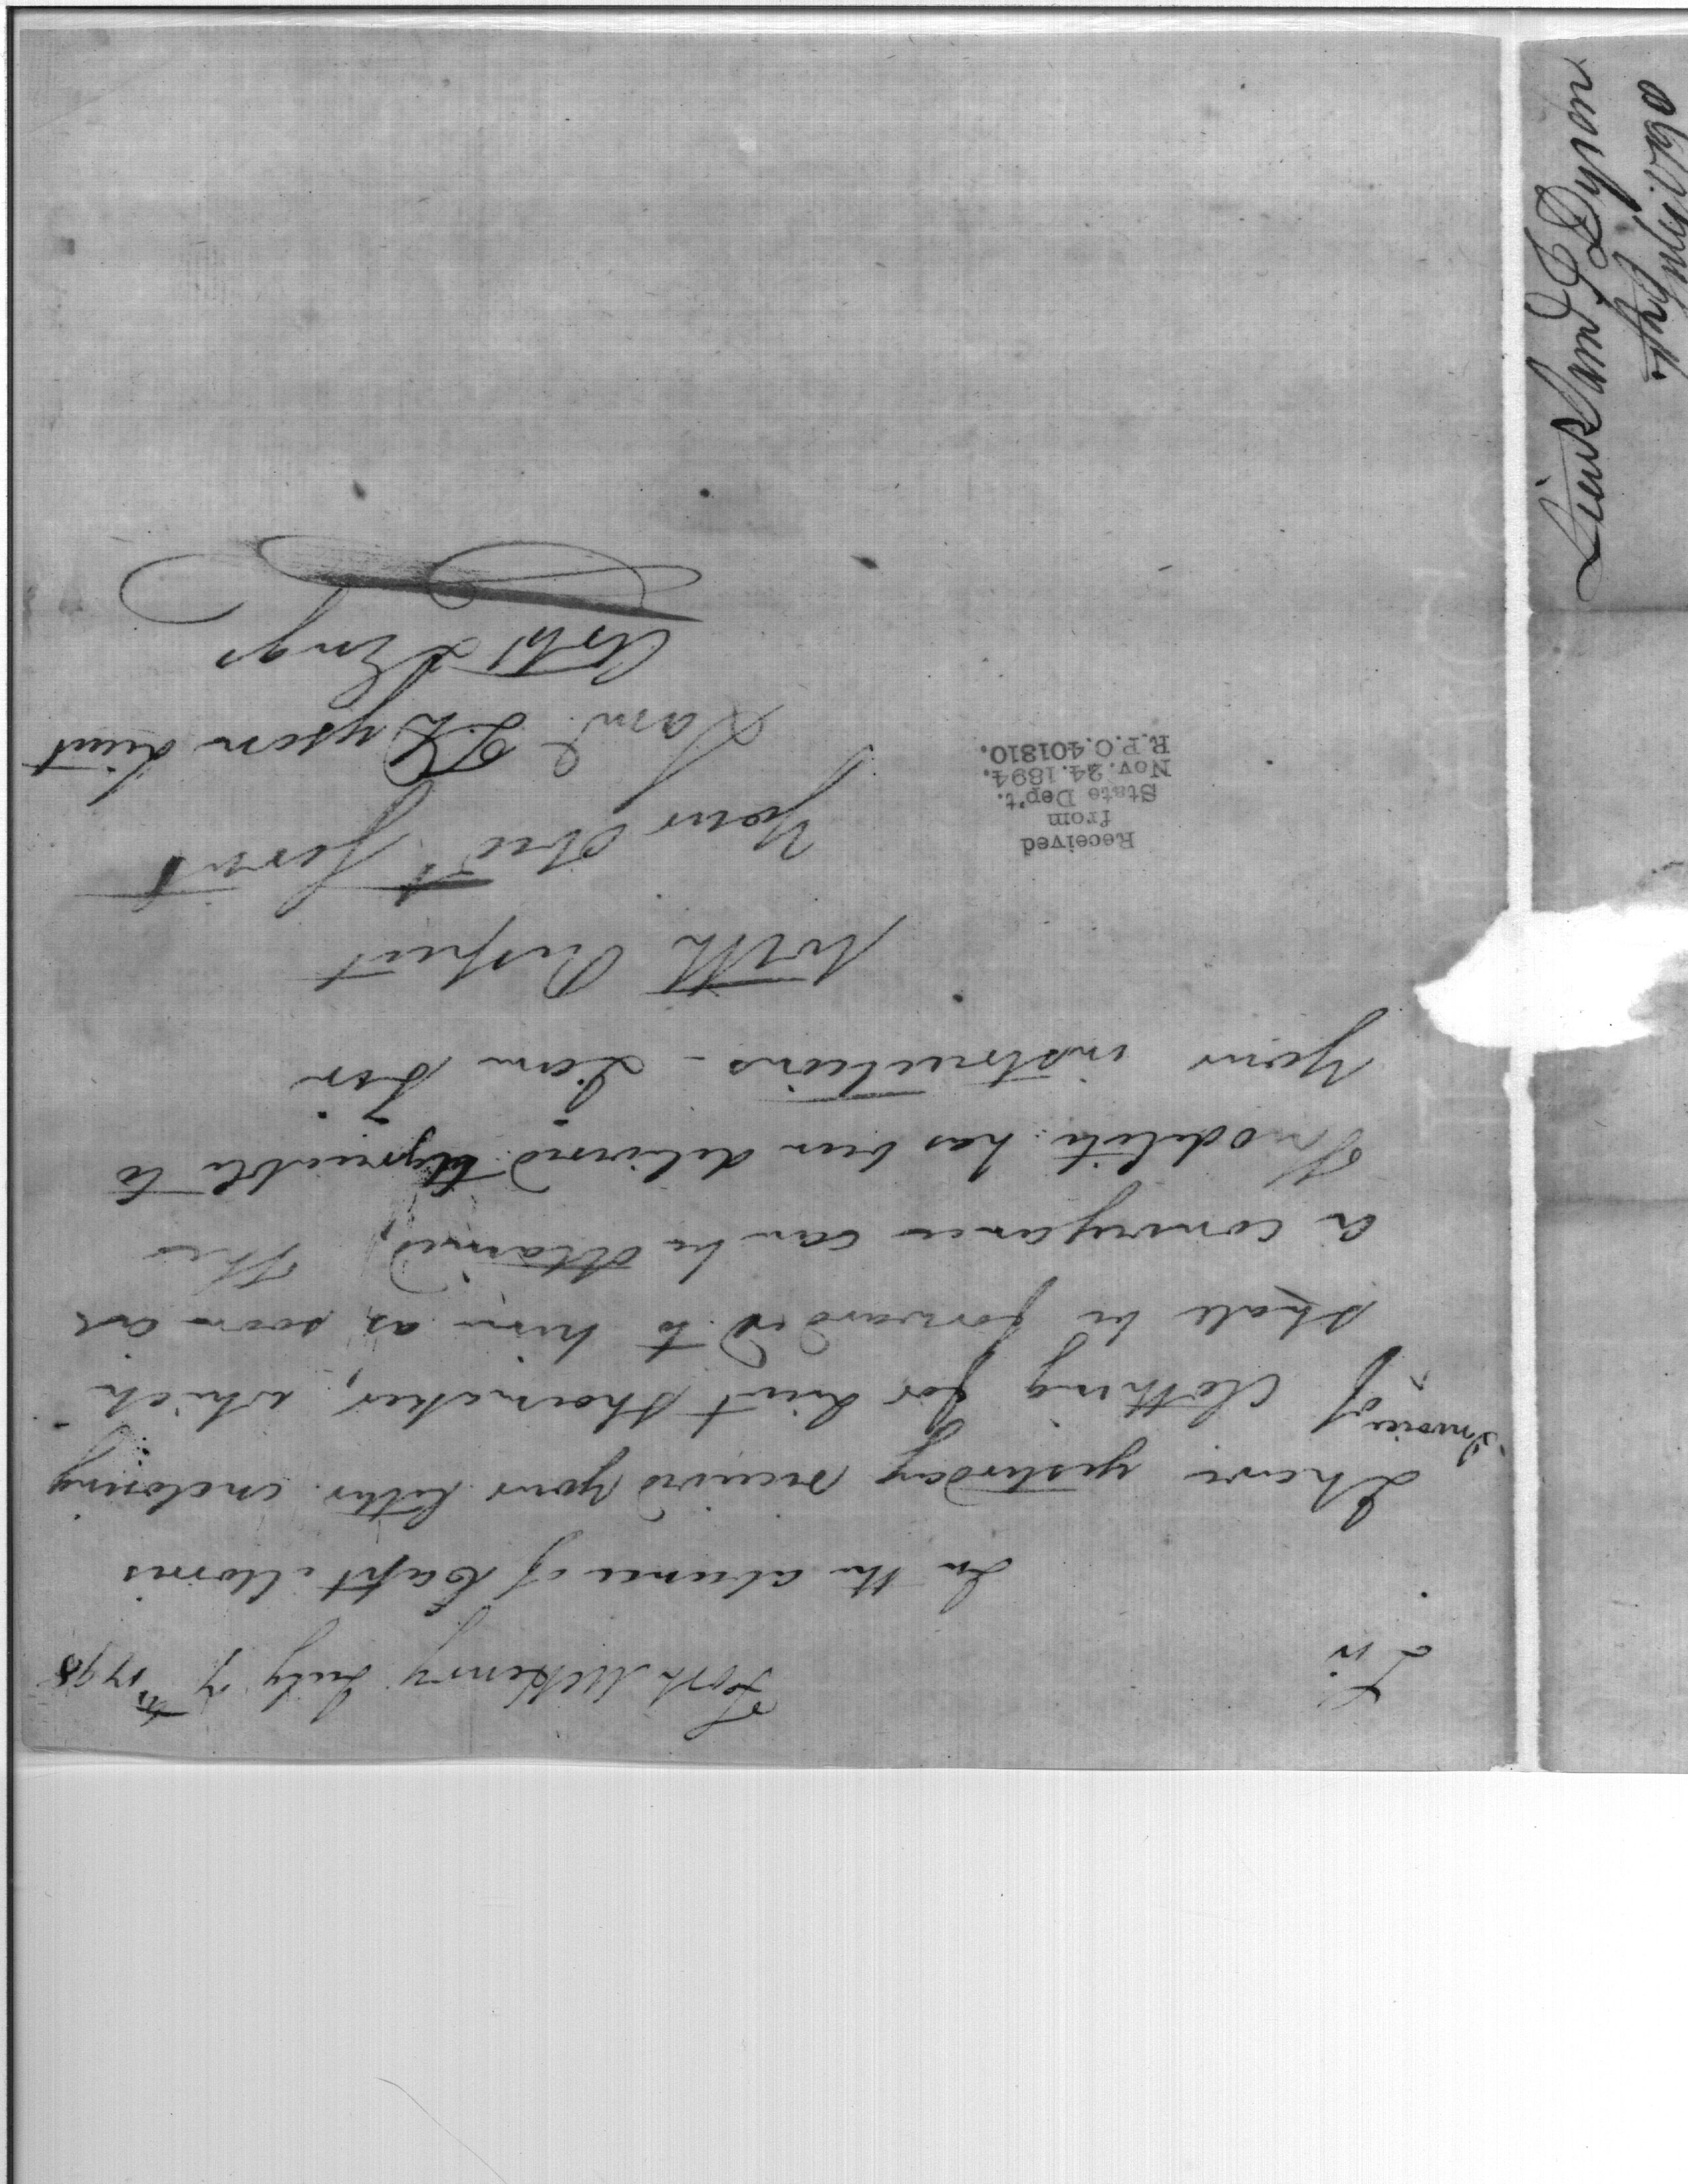 Fort McHenry July 7th 1798
Sir
In the absence of Capt Morris
I have yesterday received your letter inclosing
Invoice of
Clothing for Lieut Shoemaker, which
shall be forwarded to him as soon as
a conveyance can be obtained, The
Model &c has been delivered agreeable to
Your instructions - I am Sir
With Respect
Your Obedt Servt
Saml T. Dyson Lieut
Arts & Engs
Received
from
State Dep't.
Nov. 24. 1894.
R.P.O. 401810.
Lieut Saml T Dyson
7th July 1798